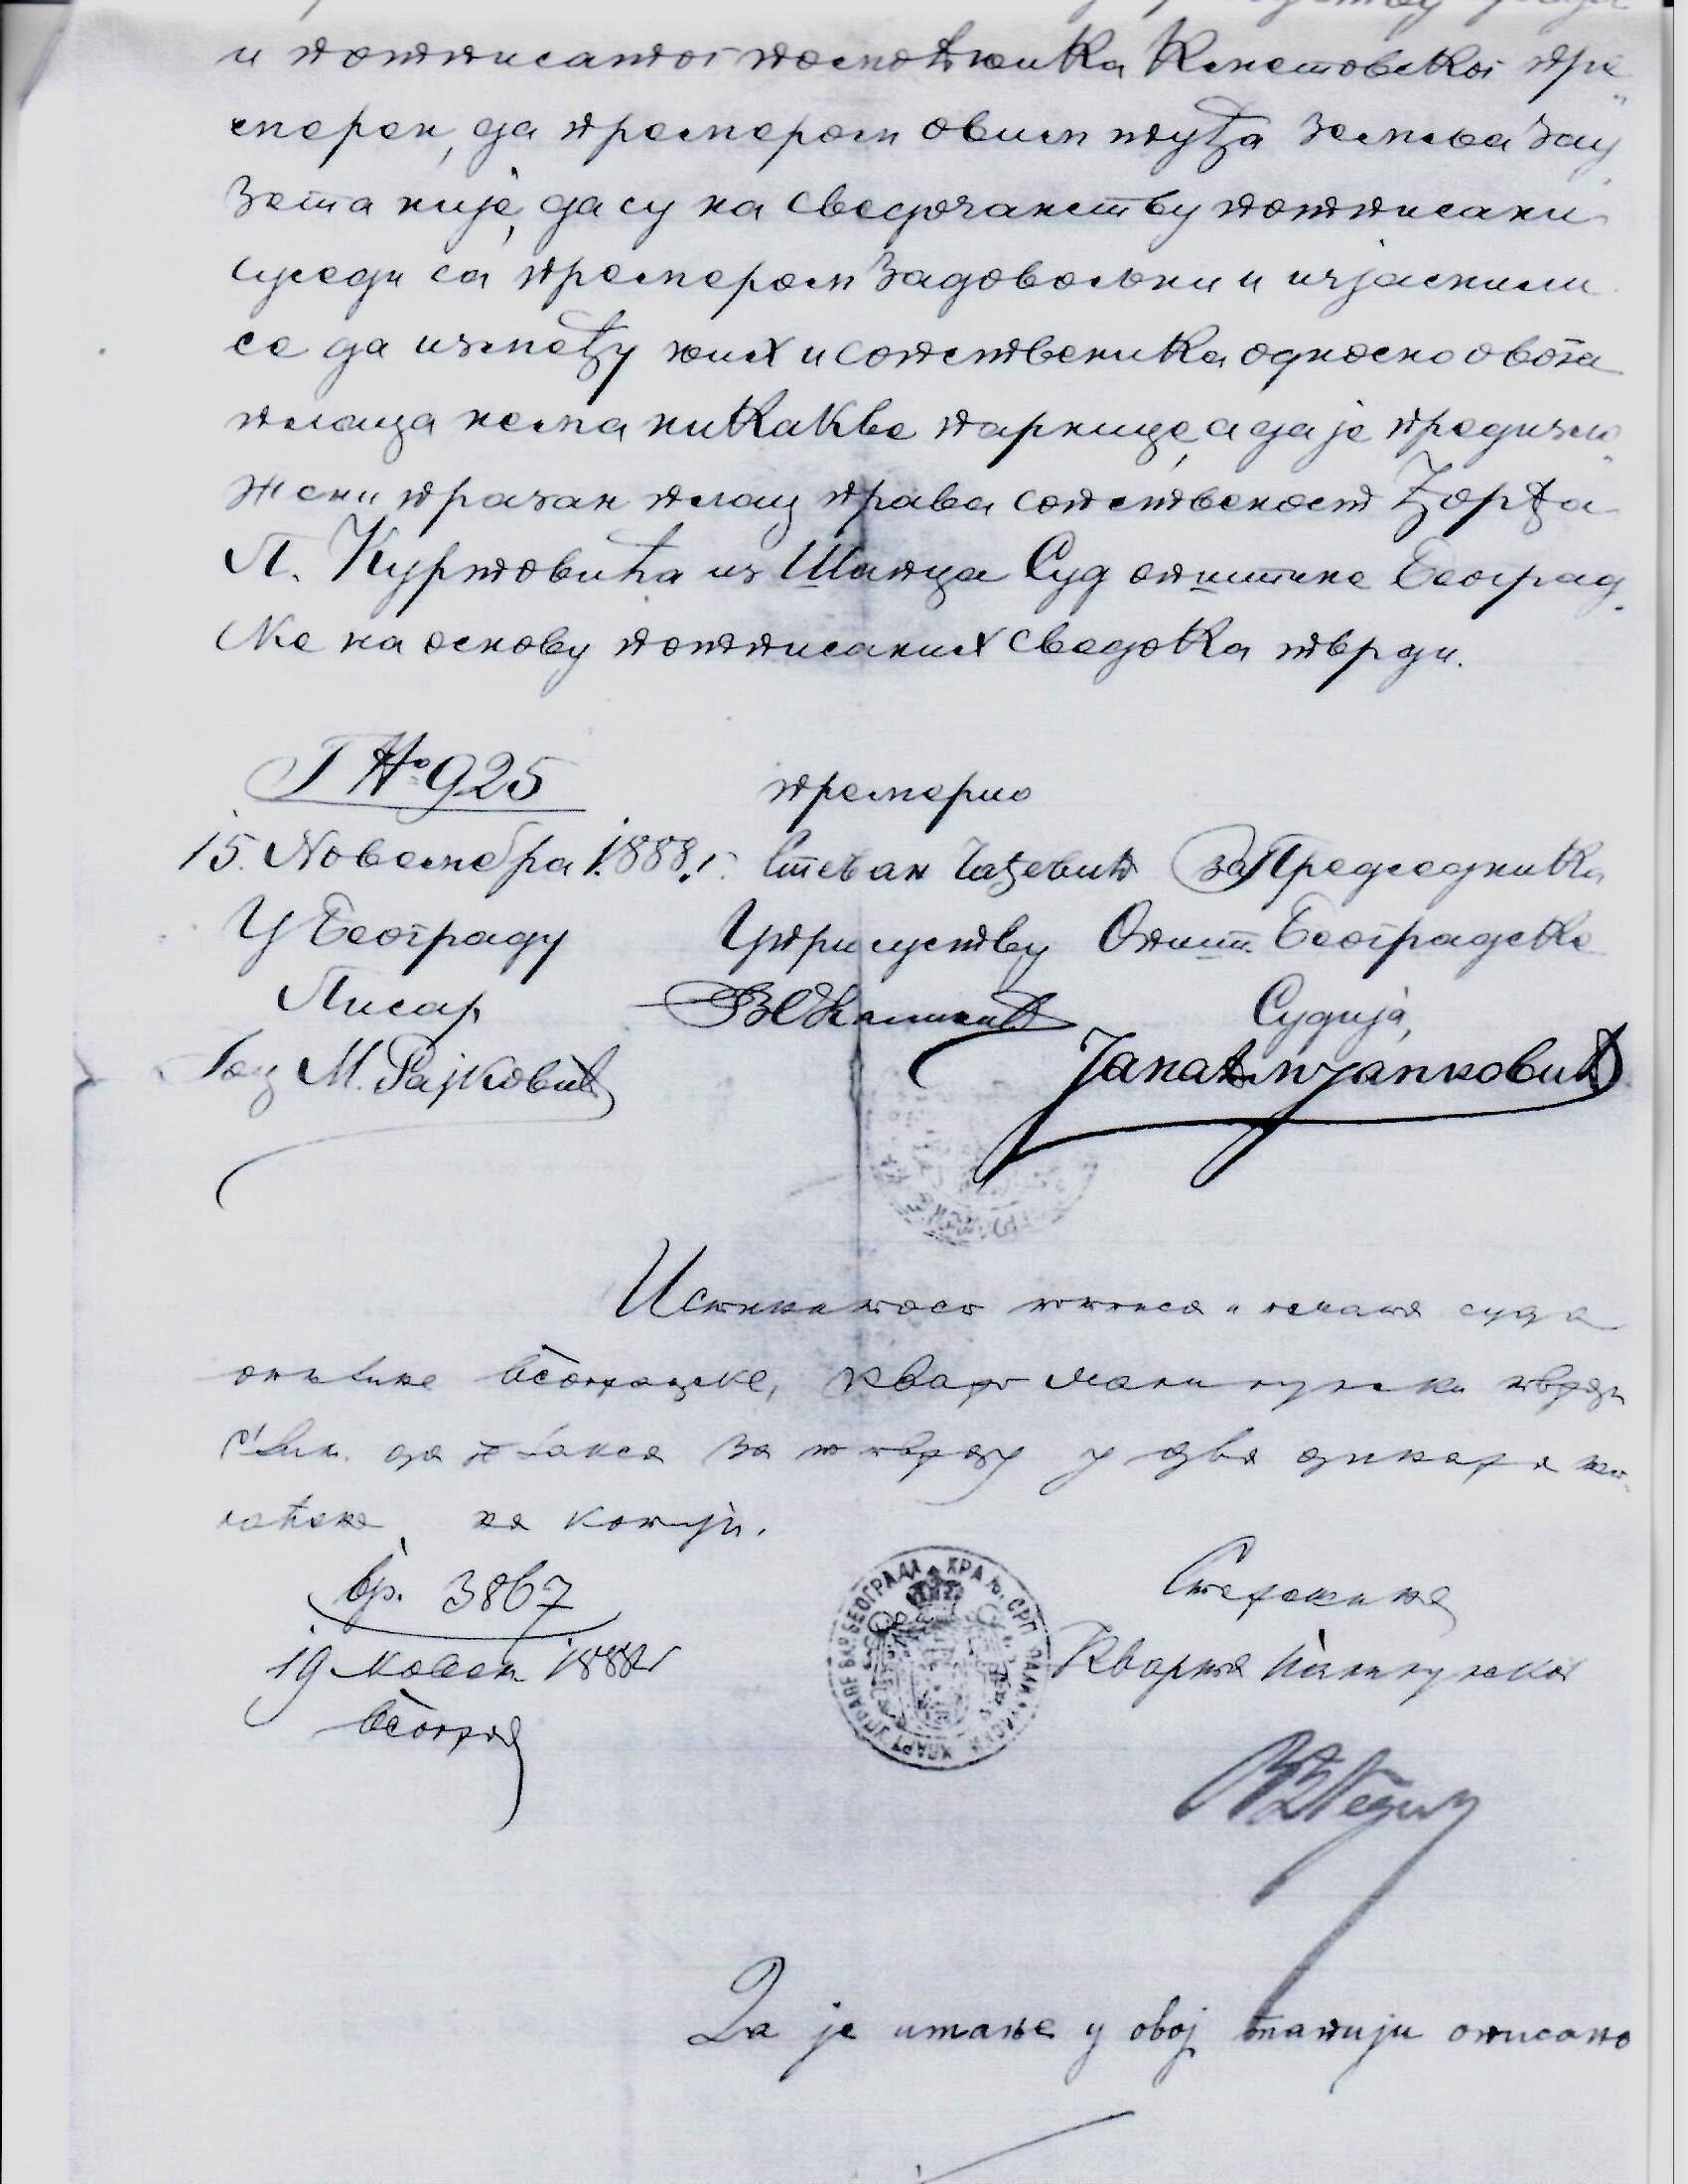 и потписатог помоћника Кметовског пре„
мерен, да премером овим туђа земља зау„
зета није, да су на сведочанству потписани
суседи са премером задовољни и изјаснили
се да између њих и сопственика односно овога
плаца нема никакве парнице, а да је предизло„
жени празан плац права сопственост Ђорђа
П. Куртовића из Шапца Суд општине Београд„
ске на основу потписаних сведока тврди.
Г № 925
премерио
15. Новембра 1888 г.
Стеван
за Председника
У Београду
У присуству
Општ. Београдске
Писар,
Судија,
М. Рајковић
Јанковић
Истинитост потписа и печата суда
општине београдске, кварт палилулски тврди
с тим да је такса за потврду у два динара по
на копији.
Бр. 3867
Старешина
19 новем. 1888 г
Кварта Палилулског
Београд
Да је имање у овој тапији описано